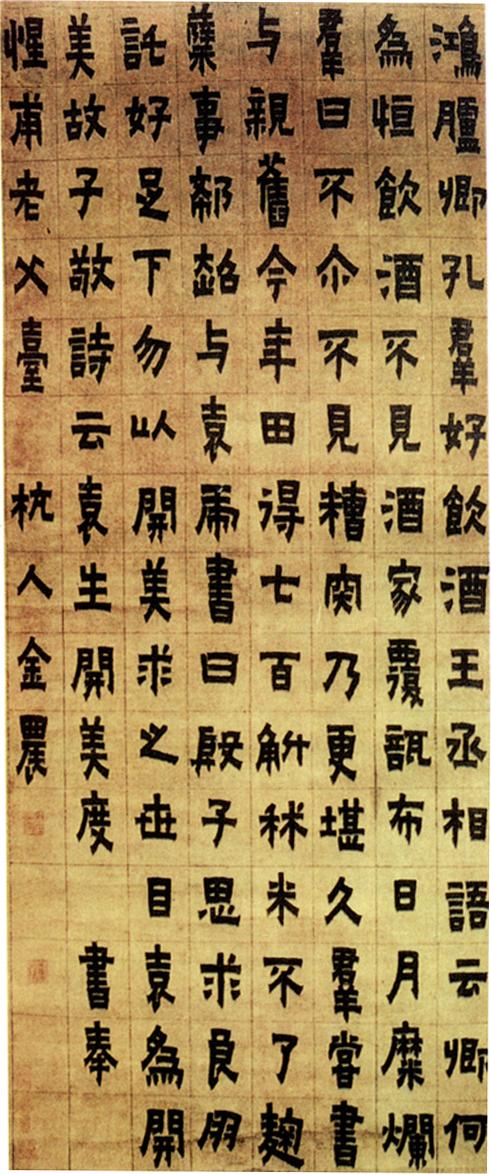 鴻臚卿孔羣好飲酒王丞相語云卿何
為恒飲酒不見酒家覆瓿布日月糜爛
羣曰不尒不見糟宍乃更堪久羣嘗書
与親舊今年田得七百斛秫米不了麹
糵事郗超与袁虎書曰殷子思求良朋
託好足下勿以開美求之世目袁為開
美故子敬詩云袁生開美度 書奉
惺甫老父臺 杭人金農